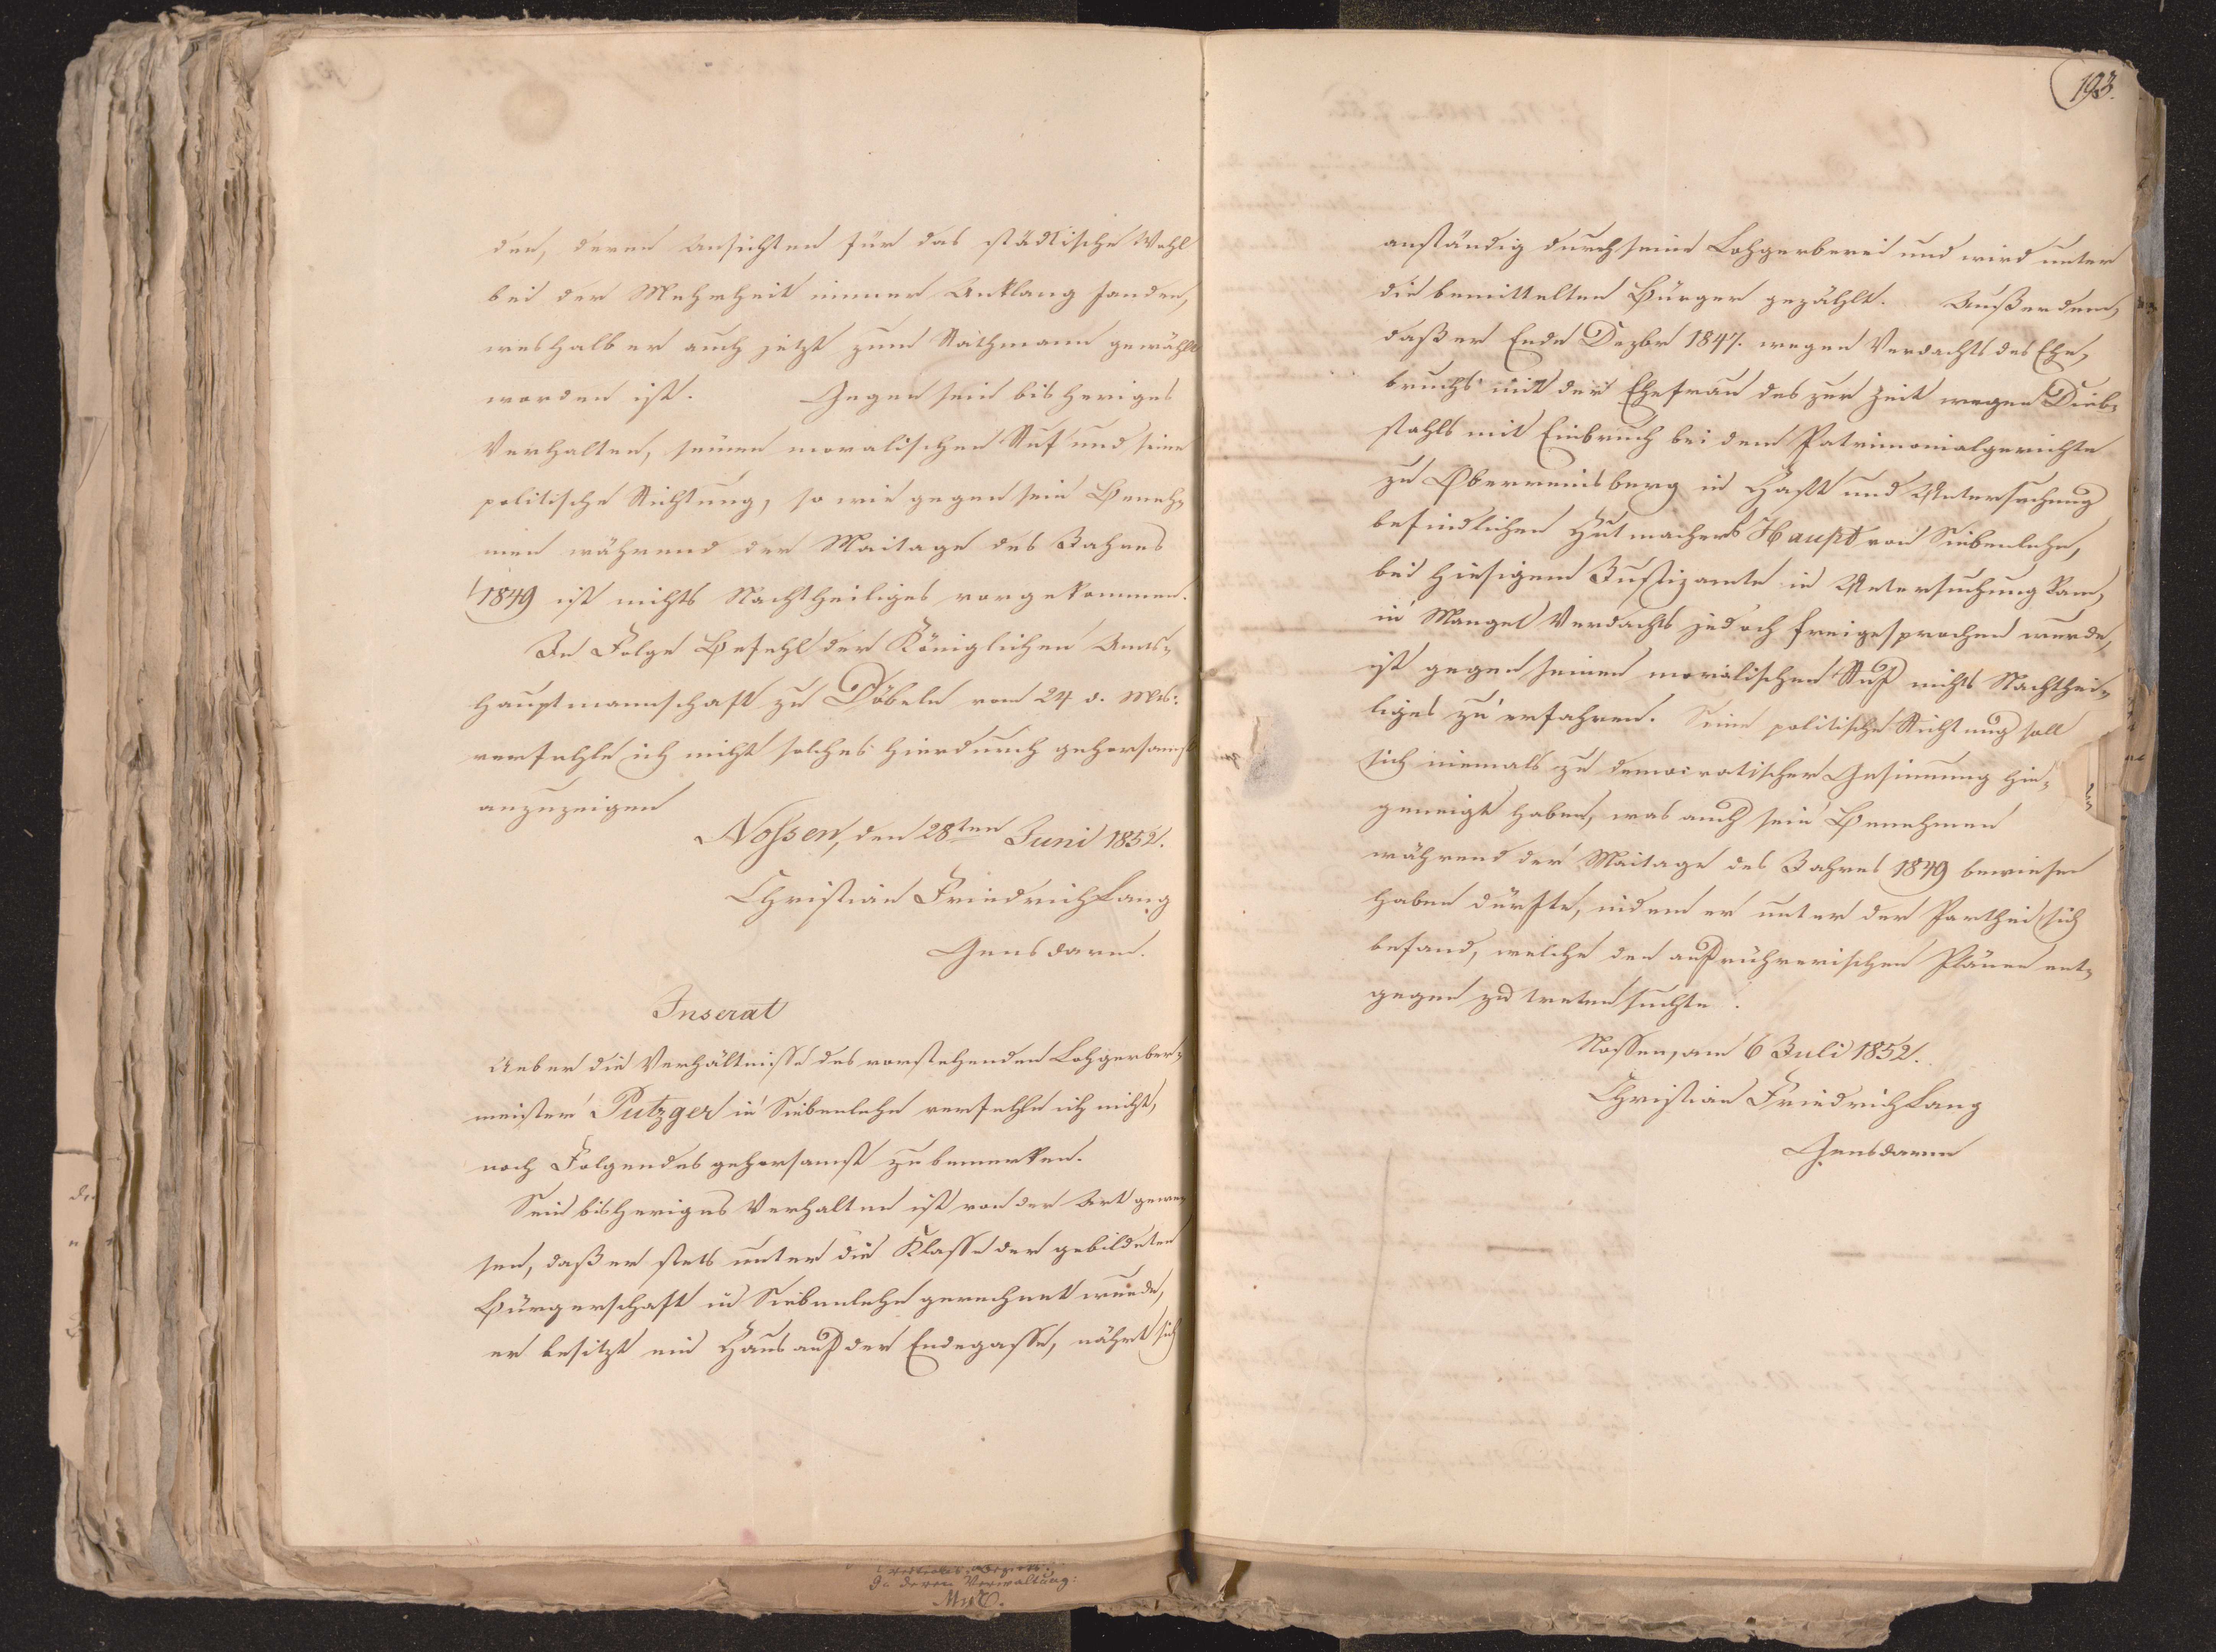 den, deren Ansichten für das städtische Wohl
bei der Mehrheit immer Anklang fanden,
weshalb er auch jetzt zum Rathmann gewählt
worden ist. Gegen sein bisheriges
Verhalten, seinen moralischen Ruf und seine
politische Richtung, so wie gegen sein Beneh-
men während der Maitage des Jahres
1849 ist nichts Nachtheiliges vorgekommen.
In Folge Befehl der Königlichen Amts-
hauptmannschaft zu Döbeln vom 24 d. Mts.
verfehle ich nicht solches hierdurch gehorsamst
anzuzeigen
Nossen, den 28ten Juni 1852.
Christian Friedrich Lang
Gensdarm.
Inserat
Ueber die Verhältnisse des vorstehenden Lohgerber-
meister Putzger in Siebenlehn verfehle ich nicht,
noch Folgendes gehorsamst zu bemerken.
Sein bisheriges Verhalten ist von der Art gewe-
sen, daß er stets unter die Klasse der gebildeten
Bürgerschaft in Siebenlehn gerechnet wurde,
er besitzt ein Haus auf der Endegasse, nährt sich
193.
anständig durch seine Lohgerberei und wird unter
die bemittelten Bürger gezählt. Außerdem,
daß er Ende Dezbr 1847. wegen Verdachts des Ehe-
bruchs mit der Ehefrau des zur Zeit wegen Dieb-
stahls mit Einbruch bei dem Patrimonialgerichte
zu Oberreinsberg in Haft und Untersuchung
befindlichen Hutmachers Haupt von Siebenlehn,
bei hiesigem Justizamte in Untersuchung kam,
in Mangel Verdachts jedoch freigesprochen wurde,
ist gegen seinen moralischen Ruf nichts Nachthei-
liges zu erfahren. Seine politische Richtung soll
sich niemals zu democratischer Gesinnung hin-
geneigt haben, was auch sein Benehmen
während der Maitage des Jahres 1849 bewiesen
haben dürfte, indem er unter der Parthei sich
befand, welche den aufrührerischen Plänen ent-
gegen zu treten suchte.
Nossen, am 6 Juli 1852.
Christian Friedrich Lang
Gensdarm
In deren Verwaltung: